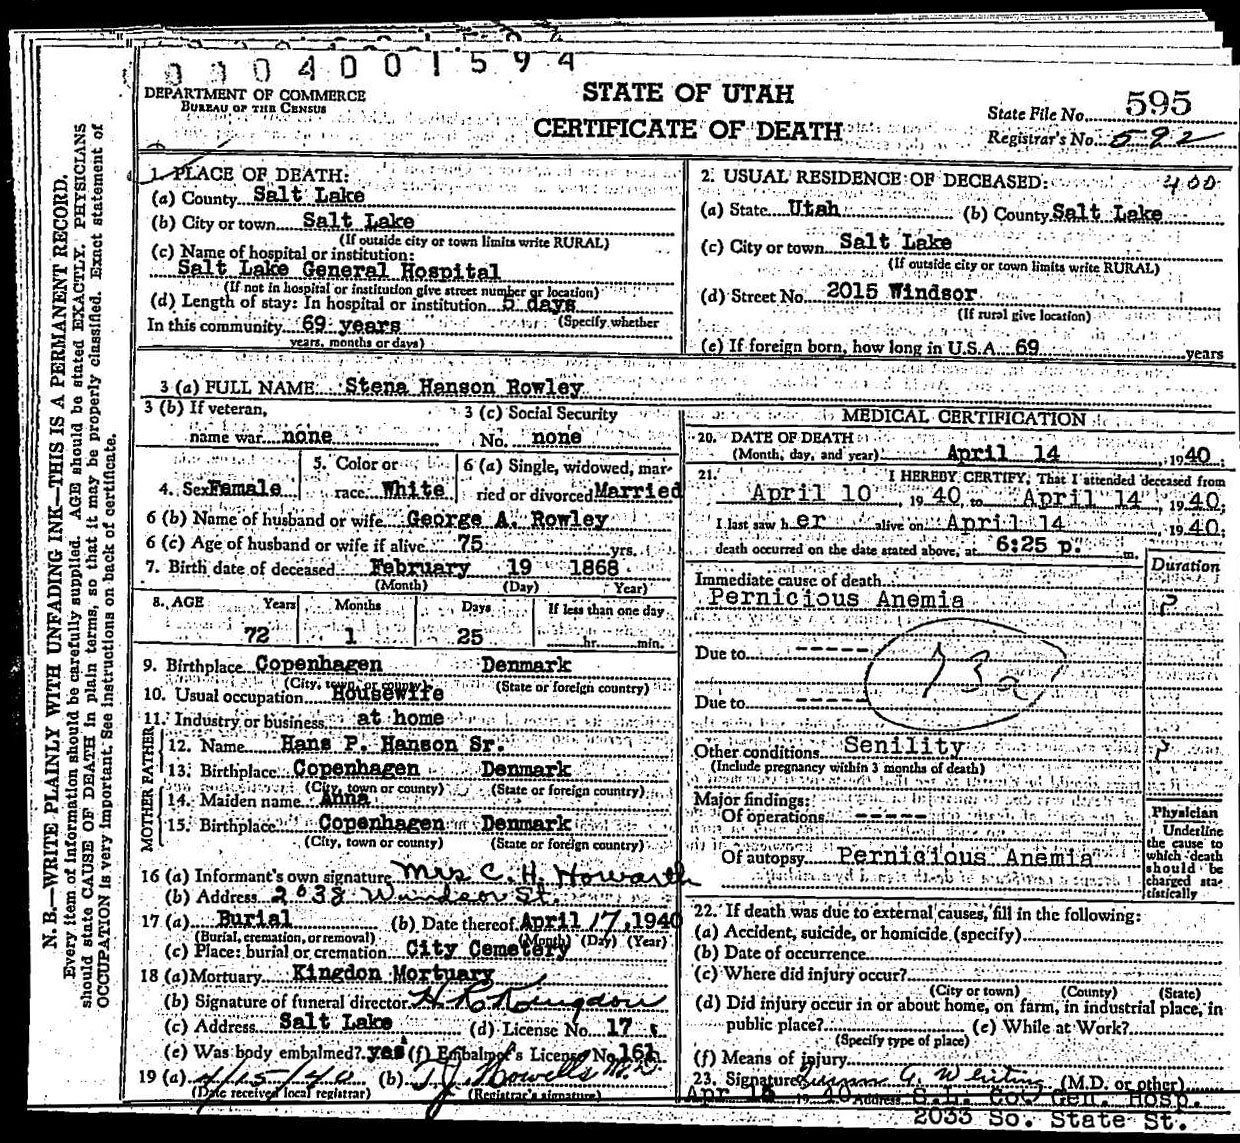 0 0 0 4 0 0 1 5 9 4
DEPARTMENT OF COMMERCE
BUREAU OF THE CENSUS
STATE OF UTAH
CERTIFICATE OF DEATH
State File No. 595
Registrar's No. 592
N. B.—WRITE PLAINLY WITH UNFADING INK—THIS IS A PERMANENT RECORD.
Every item of information should be carefully supplied. AGE should be stated EXACTLY. PHYSICIANS
should state CAUSE OF DEATH in plain terms, so that it may be properly classified. Exact statement of
OCCUPATION is very important. See instructions on back of certificate.
1. PLACE OF DEATH:
(a) County Salt Lake
(b) City or town Salt Lake
(If outside city or town limits write RURAL)
(c) Name of hospital or institution:
Salt Lake General Hospital
(If not in hospital or institution give street number or location)
(d) Length of stay: In hospital or institution 5 days
(Specify whether
In this community 69 years
years, months or days)
2. USUAL RESIDENCE OF DECEASED: 400
(a) State Utah (b) County Salt Lake
(c) City or town Salt Lake
(If outside city or town limits write RURAL)
(d) Street No. 2015 Windsor
(If rural give location)
(e) If foreign born, how long in U.S.A. 69 years
3 (a) FULL NAME Stena Hanson Rowley
3 (b) If veteran,
name war none
3 (c) Social Security
No. none
4. Sex Female
5. Color or
race White
6 (a) Single, widowed, mar-
ried or divorced Married
6 (b) Name of husband or wife George A. Rowley
6 (c) Age of husband or wife if alive 75 yrs.
7. Birth date of deceased February 19 1868
(Month) (Day) Year)
8. AGE Years Months Days If less than one day
72 1 25 hr. min.
9. Birthplace Copenhagen Denmark
(City, town or county) (State or foreign country)
10. Usual occupation Housewife
11. Industry or business at home
FATHER
12. Name Hans P. Hanson Sr.
13. Birthplace Copenhagen Denmark
(City, town or county) (State or foreign country)
MOTHER
14. Maiden name Anna
15. Birthplace Copenhagen Denmark
(City, town or county) (State or foreign country)
16 (a) Informant's own signature Mrs C. H. Howarth
(b) Address 2038 Windsor St.
17 (a) Burial (b) Date thereof April 17, 1940
(Burial, cremation, or removal) (Month) (Day) (Year)
(c) Place: burial or cremation City Cemetery
18 (a) Mortuary Kingdon Mortuary
(b) Signature of funeral director H R Kingdon
(c) Address Salt Lake (d) License No. 17
(e) Was body embalmed? yes (f) Embalmer's License No. 161
19 (a) 4/15/40 (b) T J Howells M.D.
(Date received local registrar) (Registrar's signature)
MEDICAL CERTIFICATION
20. DATE OF DEATH
(Month, day, and year) April 14, 1940;
21. I HEREBY CERTIFY, That I attended deceased from
April 10, 1940 to April 14, 1940;
I last saw her alive on April 14 1940;
death occurred on the date stated above, at 6:25 p. m.
Duration
Immediate cause of death
Pernicious Anemia ?
Due to -----
73a
Due to -----
Other conditions Senility ?
(Include pregnancy within 3 months of death)
Major findings:
Of operations -----
Of autopsy Pernicious Anemia
Physician
Underline
the cause to
which death
should be
charged sta-
tistically
22. If death was due to external causes, fill in the following:
(a) Accident, suicide, or homicide (specify)
(b) Date of occurrence
(c) Where did injury occur?
(City or town) (County) (State)
(d) Did injury occur in or about home, on farm, in industrial place, in
public place? (e) While at Work?
(Specify type of place)
(f) Means of injury
23. Signature G. (M.D. or other)
Apr 15 1940 Address S.L. Co. Gen. Hosp.
2033 So. State St.